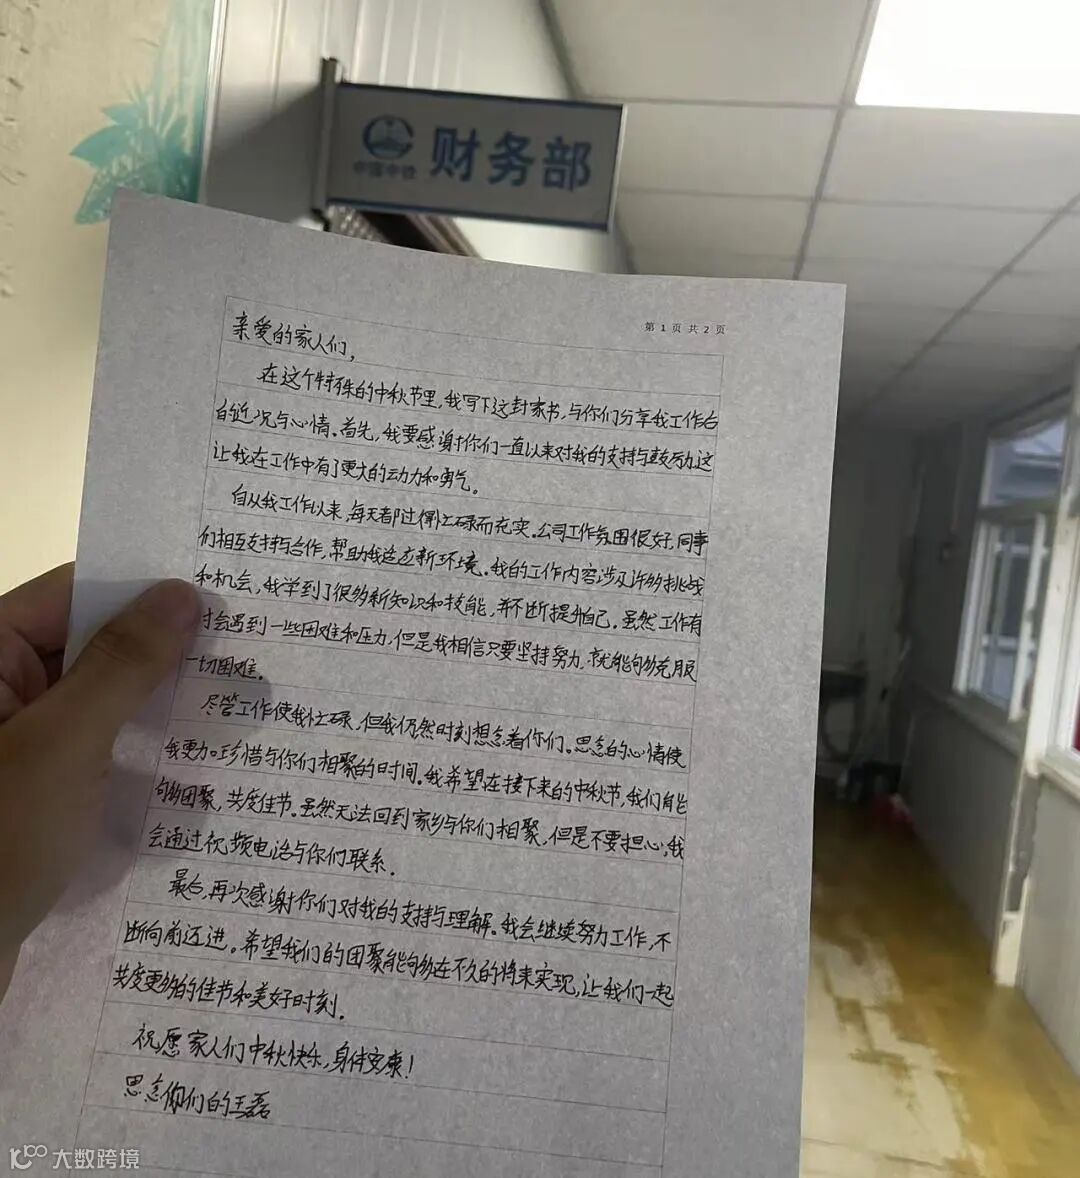 中国中铁
财务部
第 1 页 共 2 页
亲爱的家人们,
在这个特殊的中秋节里,我写下这封家书,与你们分享我工作台
的近况与心情。首先,我要感谢你们一直以来对我的支持与鼓励,这
让我在工作中有了更大的动力和勇气。
自从我工作以来,每天都过得忙碌而充实。公司工作氛围很好,同事
们相互支持与合作,帮助我适应新环境。我的工作内容涉及许多挑战
和机会,我学到了很多新知识和技能,并不断提升自己。虽然工作有
时会遇到一些困难和压力,但是我相信只要坚持努力,就能够克服
一切困难。
尽管工作使我忙碌,但我仍然时刻想念着你们。思念的心情使
我更加珍惜与你们相聚的时间。我希望在接下来的中秋节,我们能
够团聚,共度佳节。虽然无法回到家乡与你们相聚,但是不要担心,我
会通过视频电话与你们联系。
最后,再次感谢你们对我的支持与理解。我会继续努力工作,不
断向前迈进。希望我们的团聚能够在不久的将来实现,让我们一起
共度更多的佳节和美好时刻.
祝愿家人们中秋快乐,身体安康!
思念你们的王磊
大数跨境